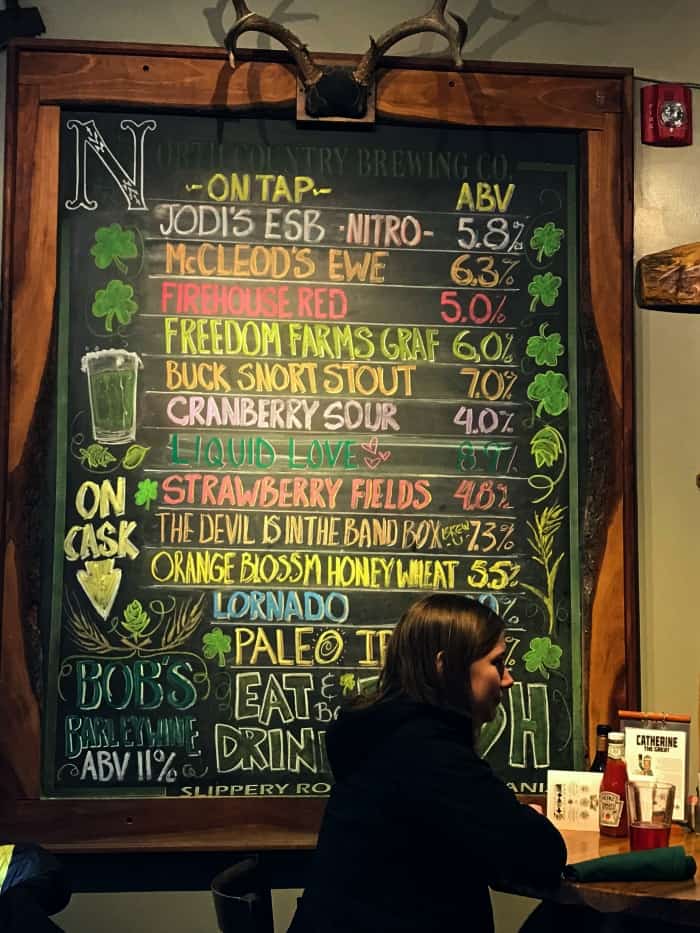 NORTH COUNTRY BREWING CO.
-ON TAP- ABV
JODI'S ESB -NITRO- 5.8%
McCLEOD'S EWE 6.3%
FIREHOUSE RED 5.0%
FREEDOM FARMS GRAF 6.0%
BUCK SNORT STOUT 7.0%
CRANBERRY SOUR 4.0%
LIQUID LOVE 8.9%
STRAWBERRY FIELDS 4.8%
THE DEVIL IS IN THE BAND BOX 7.3%
ORANGE BLOSSM HONEY WHEAT 5.5%
LORNADO %
PALEO IP %
EAT &
DRIN H
SLIPPERY RO
ON
CASK
BOB'S
BARLEYWINE
ABV 11%
FIRE
CATHERINE
THE GREAT
HEINZ